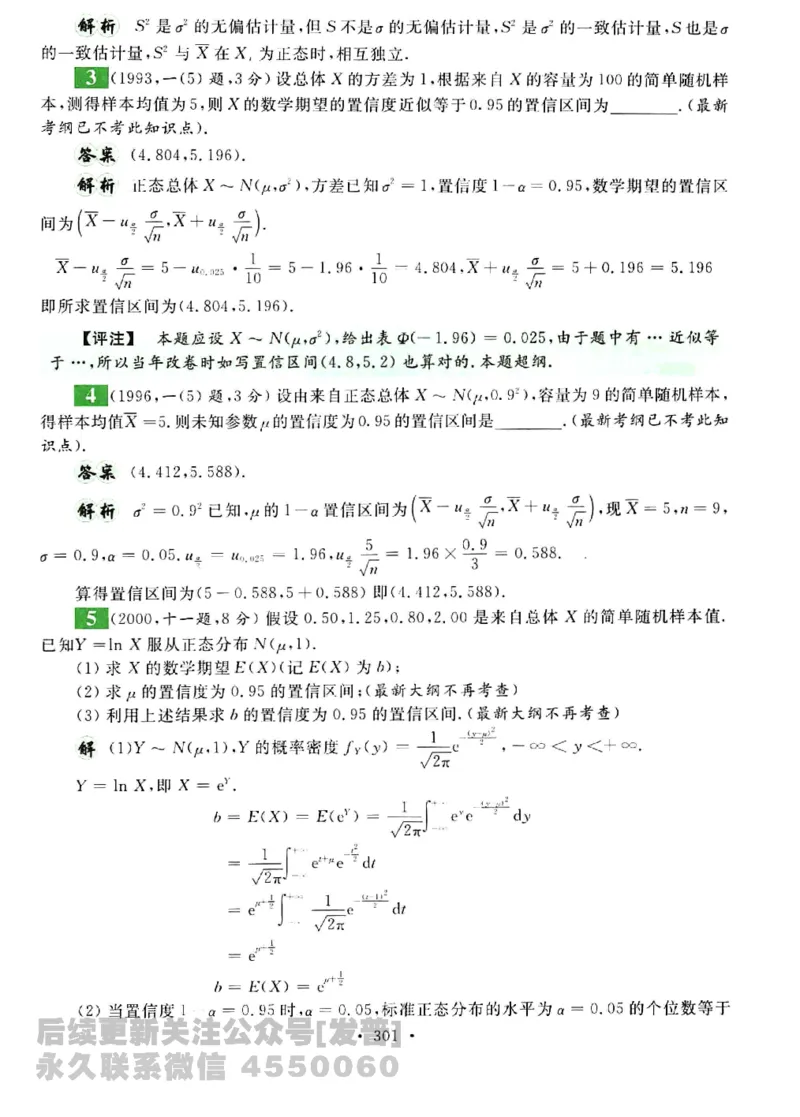 解析 S² 是 σ² 的无偏估计量,但 S 不是 σ 的无偏估计量,S² 是 σ² 的一致估计量,S 也是 σ
的一致估计量,S² 与 X̄ 在 Xᵢ 为正态时,相互独立.
3 (1993,一(5)题,3分)设总体 X 的方差为 1,根据来自 X 的容量为 100 的简单随机样
本,测得样本均值为 5,则 X 的数学期望的置信度近似等于 0.95 的置信区间为______.(最新
考纲已不考此知识点).
答案 (4.804,5.196).
解析 正态总体 X ~ N(μ,σ²),方差已知 σ² = 1,置信度 1-α = 0.95,数学期望的置信区
间为(X̄ - u_{α/2} σ/√n, X̄ + u_{α/2} σ/√n).
X̄ - u_{α/2} σ/√n = 5 - u_{0.025} · 1/10 = 5 - 1.96 · 1/10 = 4.804, X̄ + u_{α/2} σ/√n = 5 + 0.196 = 5.196
即所求置信区间为(4.804,5.196).
【评注】 本题应设 X ~ N(μ,σ²),给出表 Φ(-1.96) = 0.025,由于题中有 … 近似等
于 …,所以当年改卷时如写置信区间(4.8,5.2)也算对的.本题超纲.
4 (1996,一(5)题,3分)设由来自正态总体 X ~ N(μ,0.9²),容量为 9 的简单随机样本,
得样本均值 X̄ =5.则未知参数 μ 的置信度为 0.95 的置信区间是______.(最新考纲已不考此知
识点).
答案 (4.412,5.588).
解析 σ² = 0.9² 已知,μ 的 1-α 置信区间为(X̄ - u_{α/2} σ/√n, X̄ + u_{α/2} σ/√n),现 X̄ = 5,n = 9,
σ = 0.9,α = 0.05, u_{α/2} = u_{0.025} = 1.96, u_{α/2} 5/√n = 1.96 × 0.9/3 = 0.588.
算得置信区间为(5 - 0.588,5 + 0.588)即(4.412,5.588).
5 (2000,十一题,8分)假设 0.50,1.25,0.80,2.00 是来自总体 X 的简单随机样本值.
已知 Y =ln X 服从正态分布 N(μ,1).
(1) 求 X 的数学期望 E(X)(记 E(X) 为 b);
(2) 求 μ 的置信度为 0.95 的置信区间;(最新大纲不再考查)
(3) 利用上述结果求 b 的置信度为 0.95 的置信区间.(最新大纲不再考查)
解 (1)Y ~ N(μ,1),Y 的概率密度 f_Y(y) = 1/√(2π) e^{-(y-μ)²/2}, -∞ < y < +∞.
Y = ln X,即 X = e^Y.
b = E(X) = E(e^Y) = 1/√(2π) ∫_{-∞}^{+∞} e^y e^{-(y-μ)²/2} dy
= 1/√(2π) ∫_{-∞}^{+∞} e^{t+μ} e^{-t²/2} dt
= e^{μ+1/2} ∫_{-∞}^{+∞} 1/√(2π) e^{-(t-1)²/2} dt
= e^{μ+1/2}
b = E(X) = e^{μ+1/2}
(2) 当置信度 1-α = 0.95 时,α = 0.05,标准正态分布的水平为 α = 0.05 的个位数等于
· 301 ·
后续更新关注公众号[发普]
永久联系微信 4550060